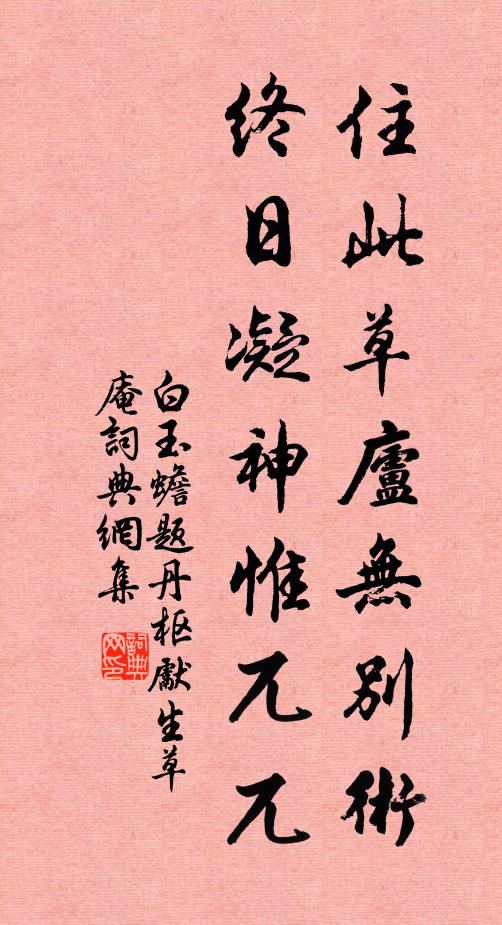 住此草廬無別術
終日凝神惟兀兀
白玉蟾題丹樞獻生草
庵詞典網集
詞典網印